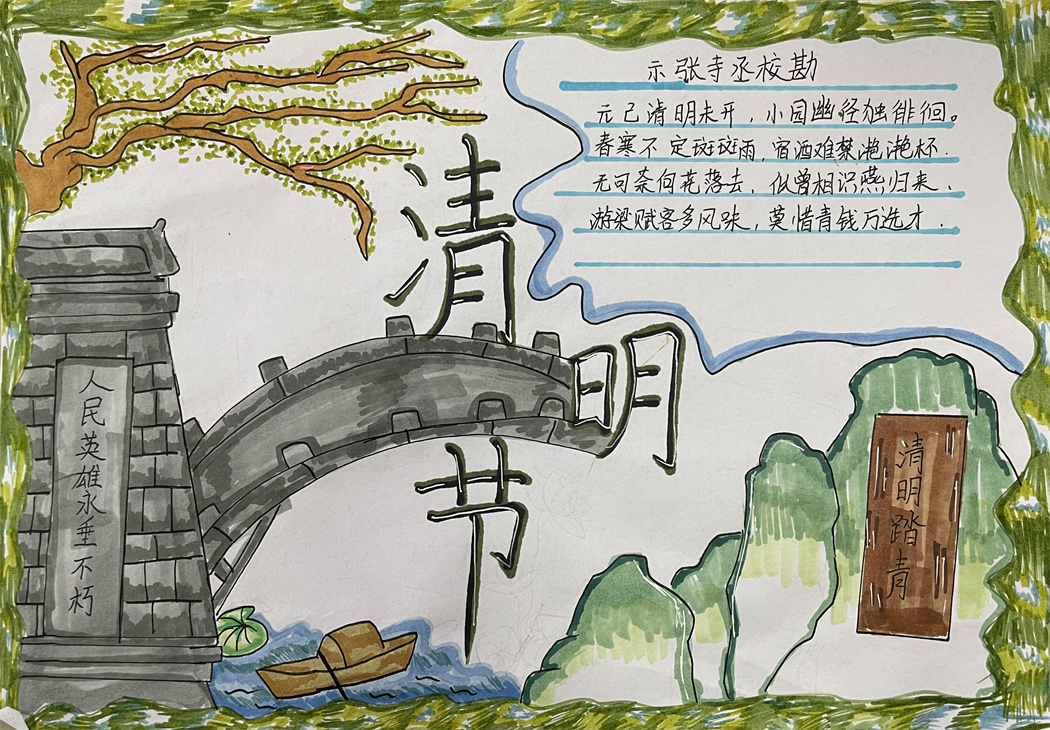 示张寺丞校勘
元己清明未开，小园幽径独徘徊。
春寒不定斑斑雨，宿酒难禁滟滟杯.
无可奈何花落去，似曾相识燕归来.
游梁赋客多风味，莫惜青钱万选才.
清明节
人民英雄永垂不朽
清明踏青